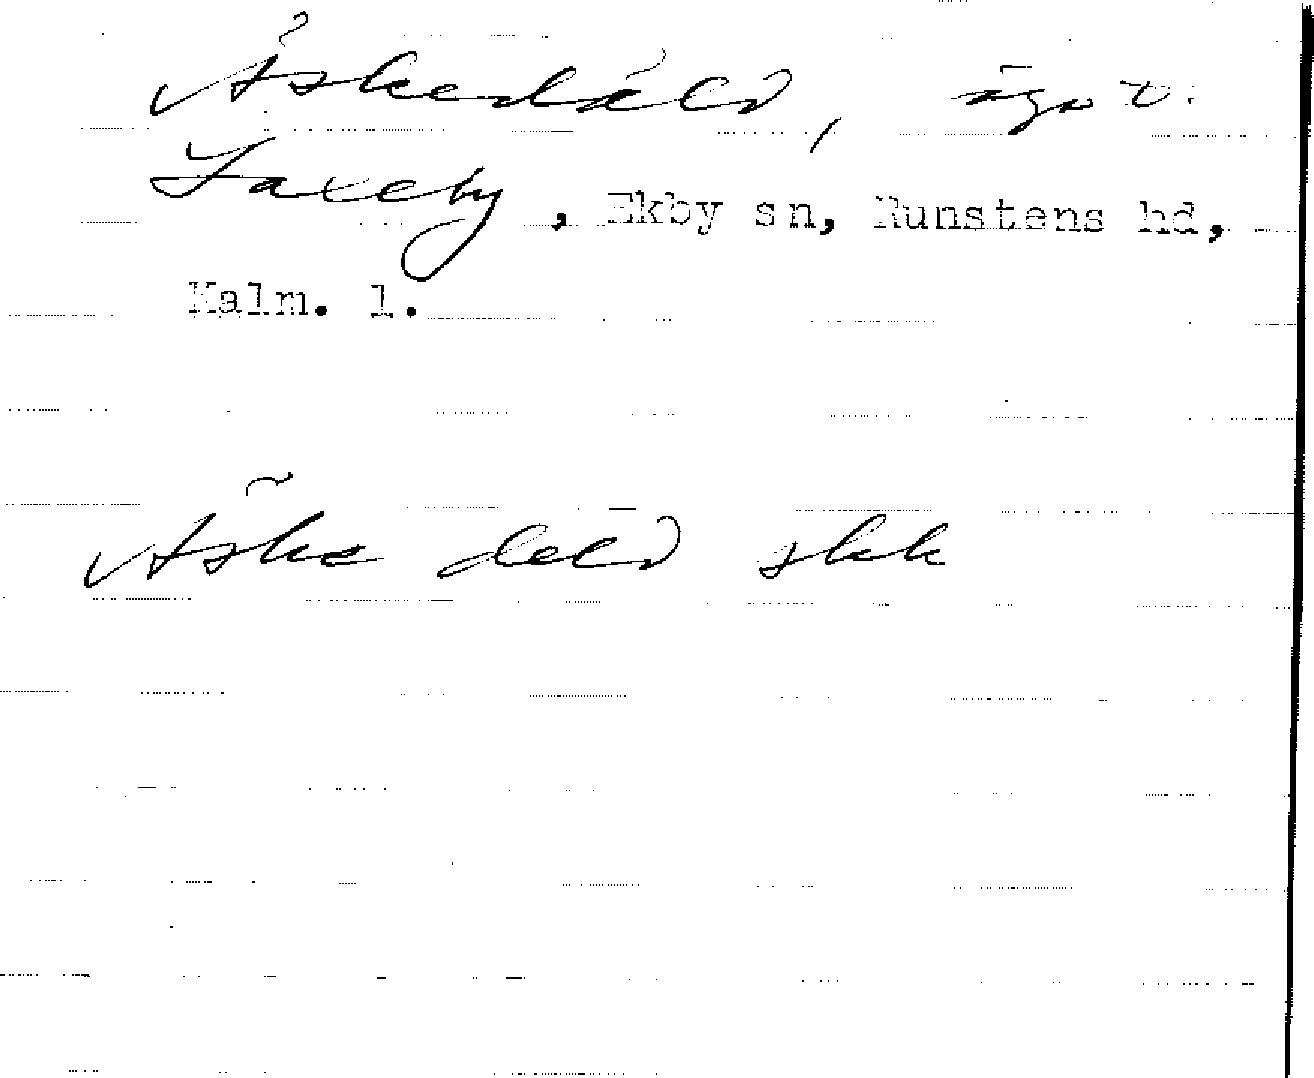 Åskedäld, ägor.
Laxeby, Ekby sn, Runstens hd,
Kalm. l.
Åske deld skk